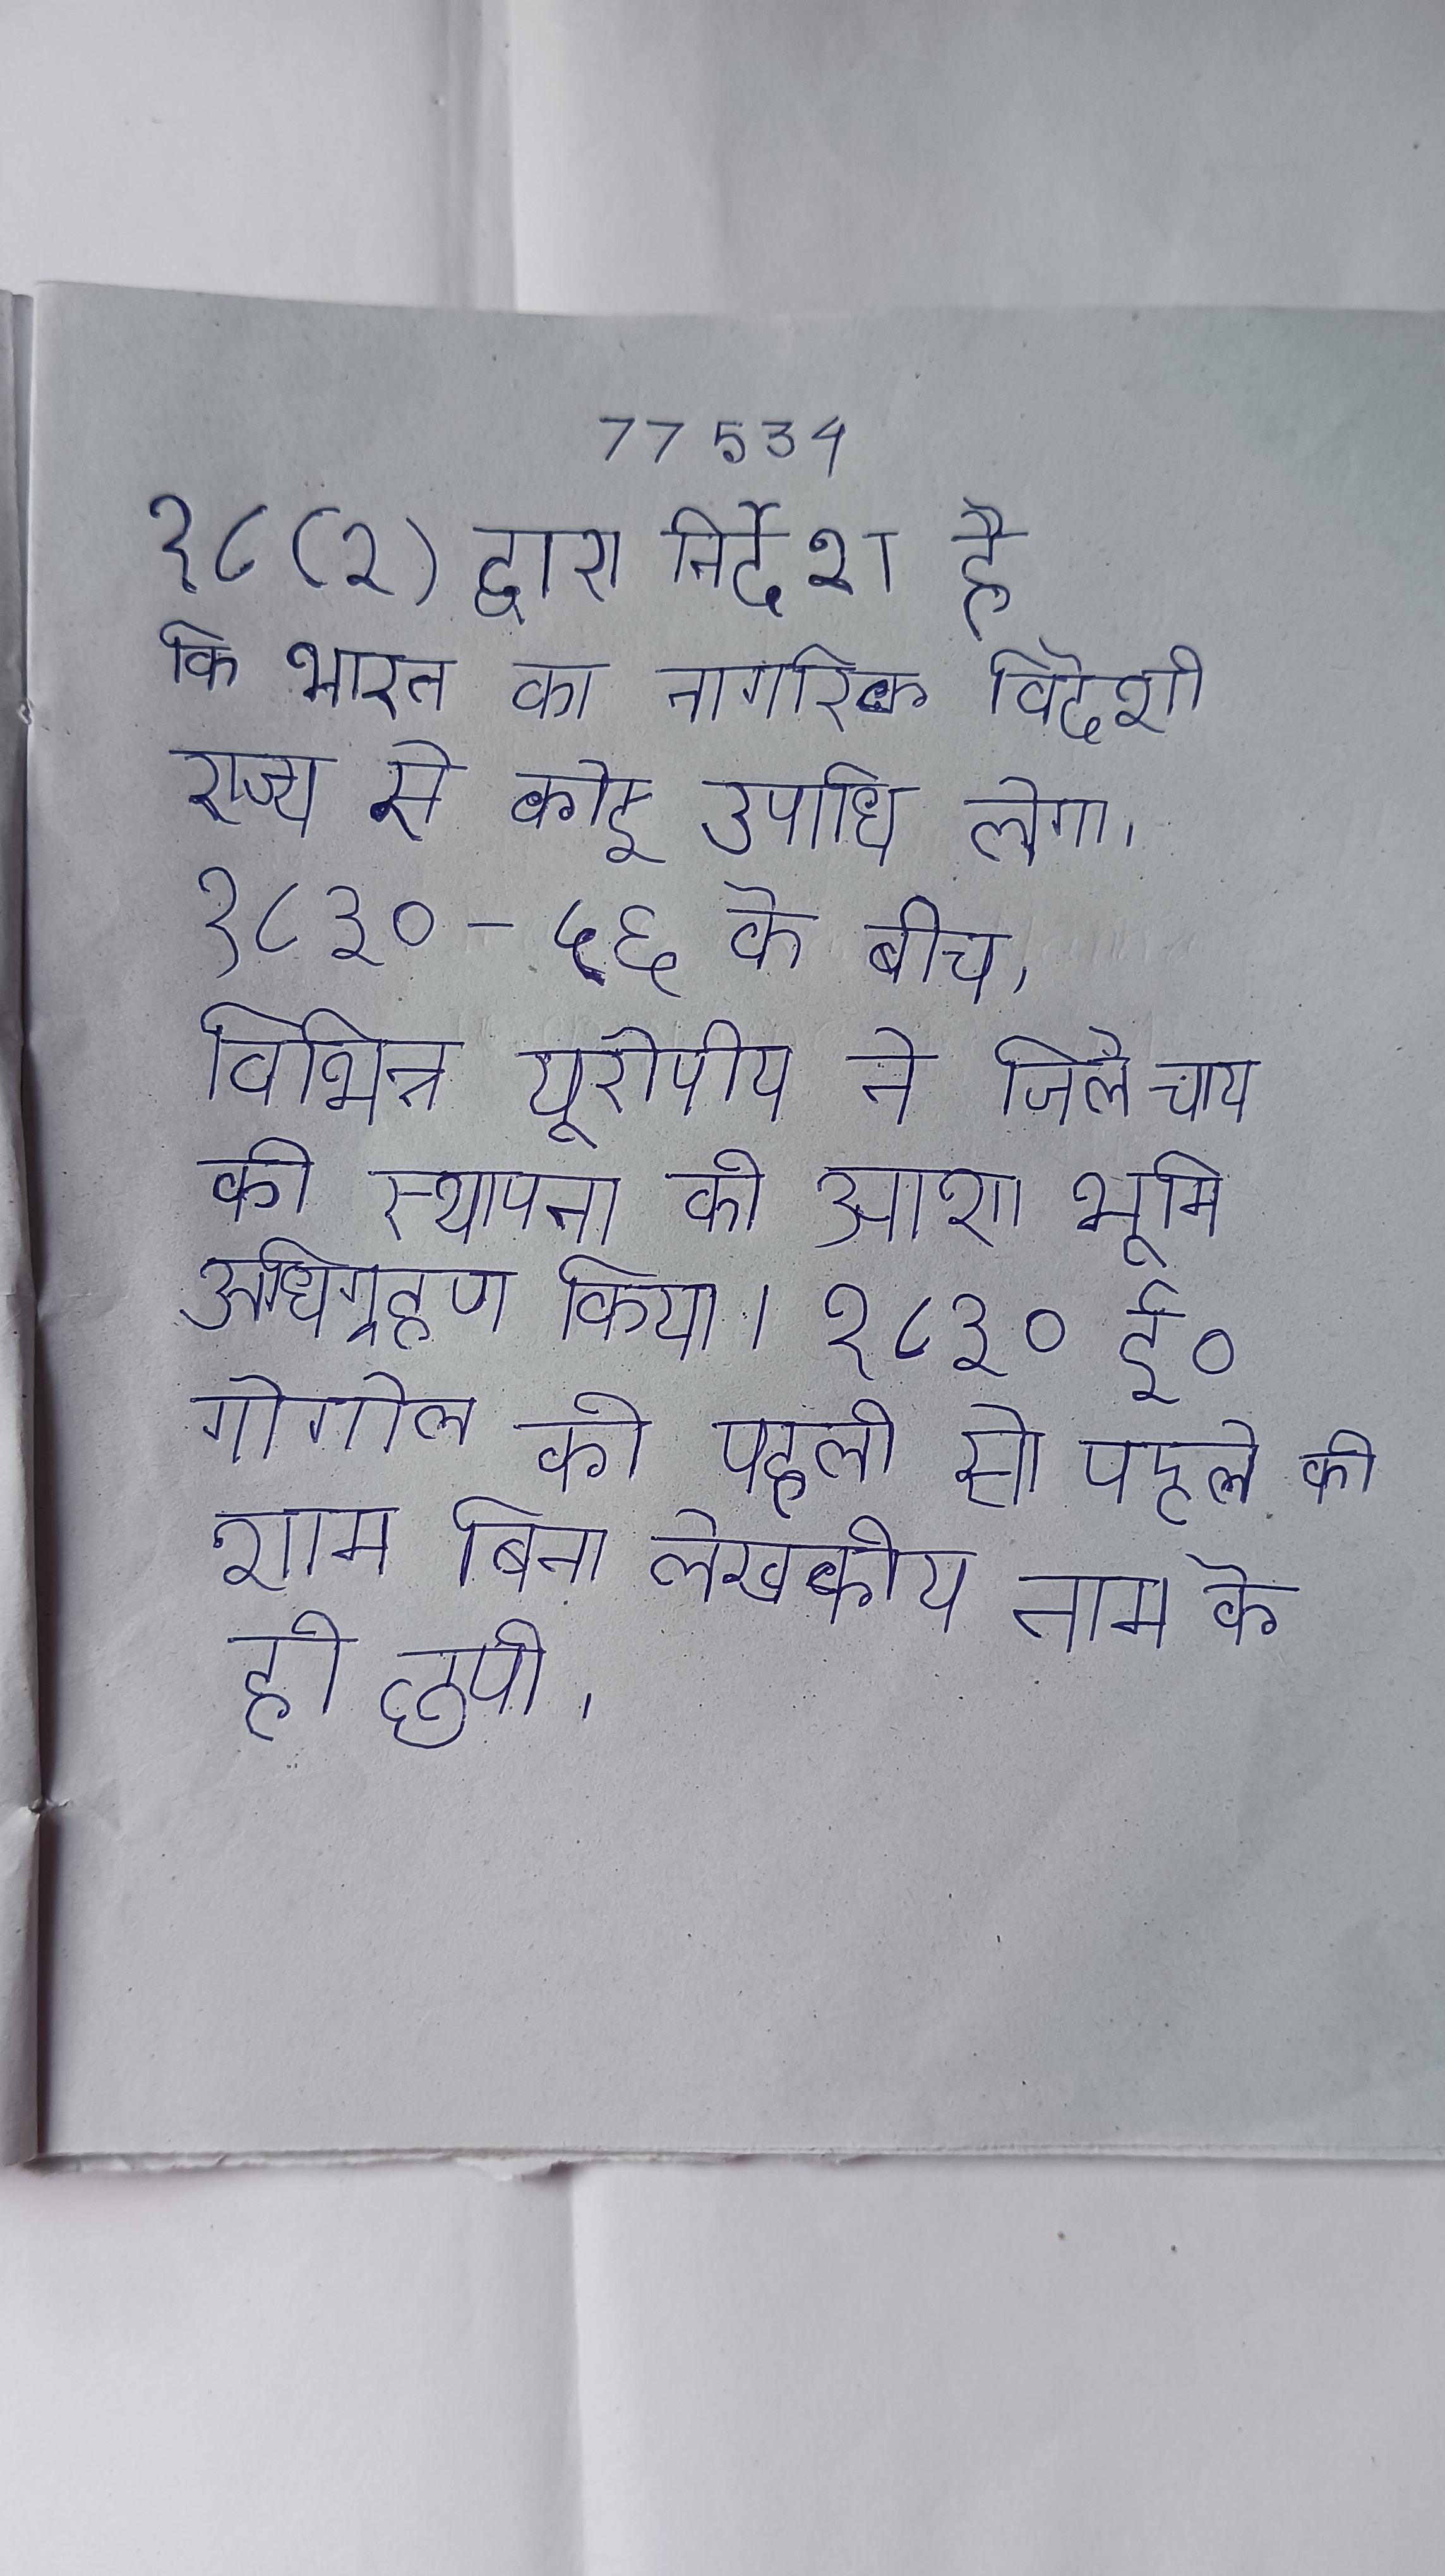 77534
१८(२) द्वारा निर्देश है
कि भारत का नागरिक विदेशी
राज्य से कोइ उपाधि लेगा।
१८३०-५६ के बीच,
विभिन्न यूरोपीय ने जिले चाय
की स्थापना की आशा भूमि
अधिग्रहण किया। १८३० ई०
गोगोल की पहली सो पहले की
शाम बिना लेखकीय नाम के
ही छपी।